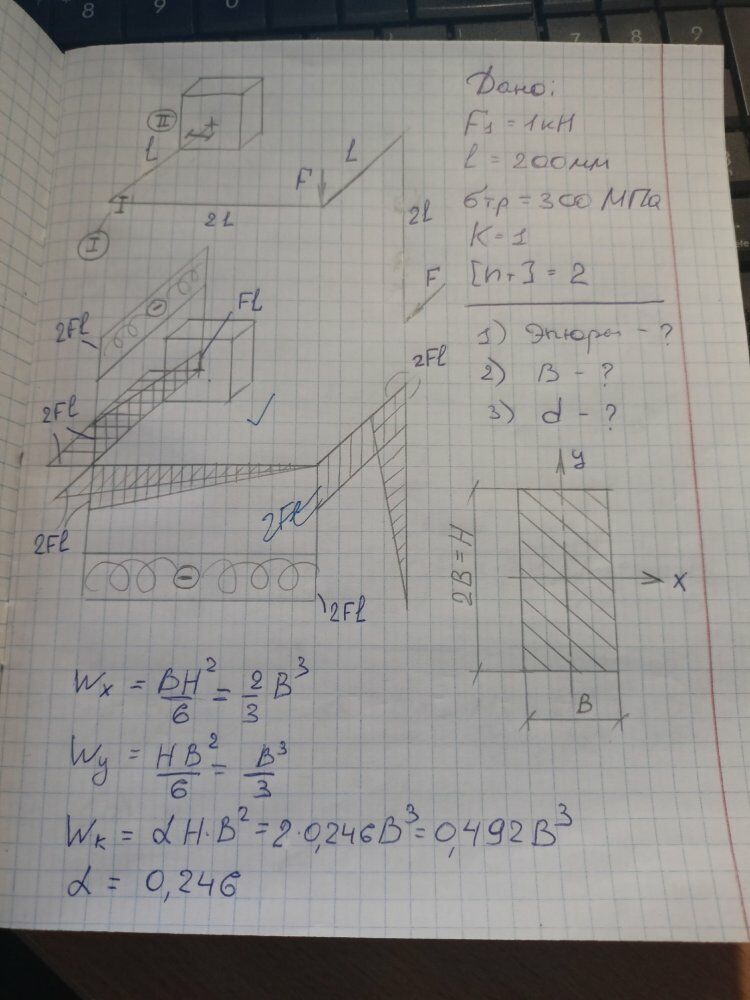 8 9 0
7 8 9
Дано:
F₁ = 1кН
l = 200мм
σтр = 300 МПа
K = 1
[nт] = 2
1) Эпюры - ?
2) B - ?
3) d - ?
II
l
F
l
2l
I
2l
F
2Fl
-
Fl
2Fl
2Fl
2Fl
2Fl
-
2Fl
y
x
2B = H
B
Wx = BH²/6 = 2/3 B³
Wy = HB²/6 = B³/3
Wк = αH·B² = 2·0,246B³ = 0,492B³
α = 0,246